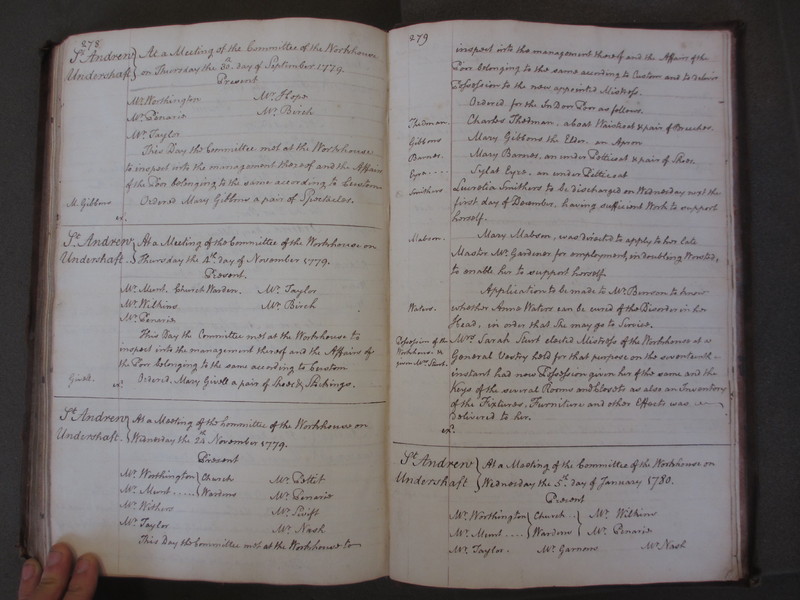 278
St. Andrew Undershaft. } At a Meeting of the Committee of the Workhouse
on Thursday the 30th day of September 1779.
Present
Mr. Worthington Mr. Hope
Mr. Penarie Mr. Birch
Mr. Taylor
This Day the Committee met at the Workhouse
to inspect into the management thereof and the Affairs
of the Poor belonging to the same according to Custom
M. Gibbons Ordered Mary Gibbons a pair of Spectacles.
ex.
St. Andrew Undershaft. } At a Meeting of the Committee of the Workhouse on
Thursday the 4th. day of November 1779.
Present.
Mr. Church Warden. Mr. Taylor
Mr. Wilkins Mr. Birch
Mr. Penarie
This Day the Committee met at the Workhouse to
inspect into the management thereof and the Affairs of
the Poor belonging to the same according to Custom
Ordered, Mary a pair of Shoes & Stockings.
ex.
St. Andrew Undershaft. } At a Meeting of the Committee of the Workhouse on
Wednesday the 24th November 1779.
Present
Mr. Worthington } Church Mr. Pettit
Mr. .... } Wardens Mr. Penarie
Mr. Withers Mr. Swift
Mr. Taylor Mr. Nash
This Day the Committee met at the Workhouse to
279
inspect into the management thereof and the Affairs of the
Poor belonging to the same according to Custom and to deliver
Possession to the new appointed Mistress.
Ordered for the In Door Poor as follows.
Thedman. Charles Thedman, a boat Waistcoat & pair of Breeches.
Gibbons Mary Gibbons the Elder, an Apron
Barnes. Mary Barnes, an under Petticoat & pair of Shoes.
Eyre .... Eyre, an under Petticoat
Smithers Smithers to be discharged on Wednesday next the
first day of December, having sufficient Work to support
herself.
Mabson. Mary Mabson, was directed to apply to her late
Master Mr. Gardener for employment, in doubling Worsted,
to enable her to support herself
Application to be made to Mr. Benson to know
Waters. whether Anne Waters can be cured of the Disorder in her
Head, in order that She may go to Service.
Possession of the Workhouse & given Mrs. Sturt. Mrs. Sarah Sturt elected Mistress of the Workhouse at a
General Vestry held for that purpose on the seventeenth
instant had now Possession given her of the same and the
Keys of the several Rooms and Closets as also an Inventory
of the Fixtures, Furniture and other Effects was
Delivered to her.
ex.
St. Andrew Undershaft } At a Meeting of the Committee of the Workhouse on
Wednesday the 5th. day of January 1780.
Present
Mr. Worthington } Church .. } Mr. Wilkins
Mr. .... } Wardens } Mr. Penarie
Mr. Taylor. Mr. Garnons Mr. Nash